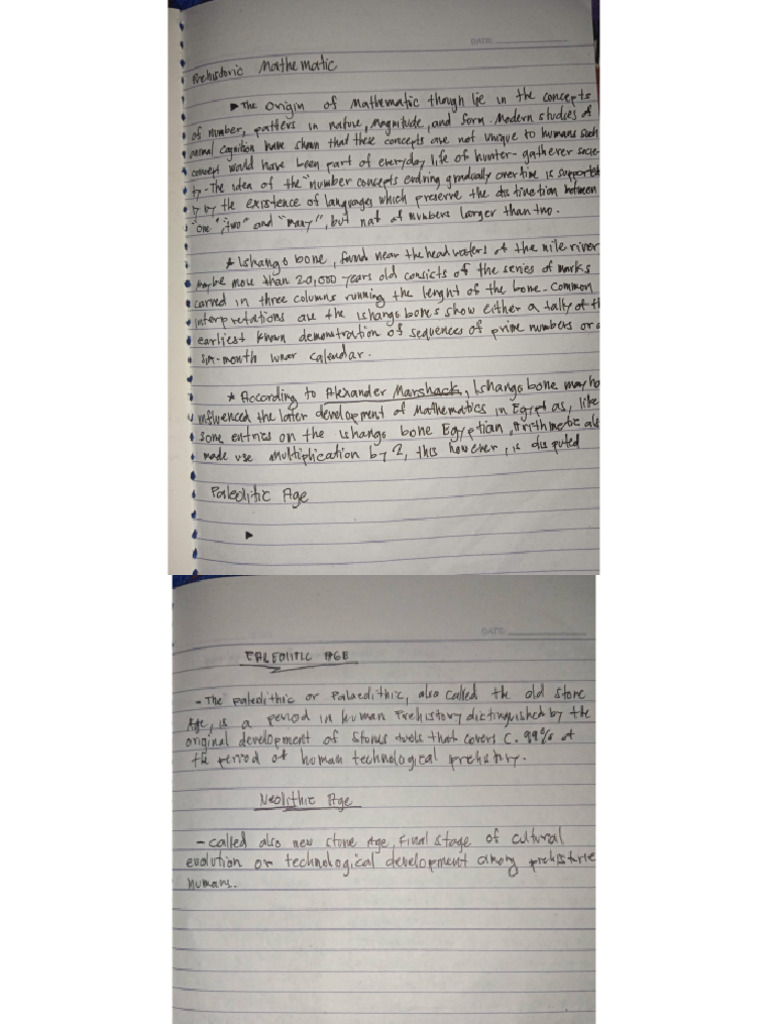 DATE:
Prehistoric Mathematic
▶ The Origin of Mathematic though lie in the concepts
of number, patters in nature, magnitude, and form. Modern studies of
animal cognition have shown that these concepts are not unique to humans such
concept would have been part of everyday life of hunter-gatherer socie-
ty - The idea of the "number concepts evolving gradually over time is supported
by the existence of languages which preserve the distinction between
"one", "two" and "many", but not of numbers larger than two.
* Ishango bone, found near the head waters of the nile river
maybe more than 20,000 years old consicts of the series of marks
carved in three columns running the lenght of the bone - Common
interpretations are the ishango bones show either a tally of th
earliest known demonstration of sequences of prime numbers or a
six-month lunar calendar.
* According to Alexander Marshack, Ishango bone may ha
influenced the later development of Mathematics in Egypt as, like
some entries on the ishango bone Egyptian, arithmetic als
made use multiplication by 2, this however, is disputed
Paleolitic Age
▶
DATE:
PALEOLITIC AGE
- The paleolithic or Palaeolithic, also called the old stone
Age, is a period in human Prehistory distinguished by the
original development of Stones tools that covers C. 99% of
the period of human technological prehistory.
Neolithic Age
- called also new stone Age, final stage of cultural
evolution or technological development among prehistoric
humans.